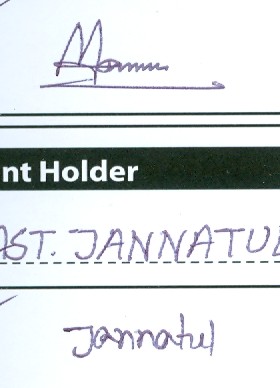 nt Holder
AST. JANNATUL
Jannatul